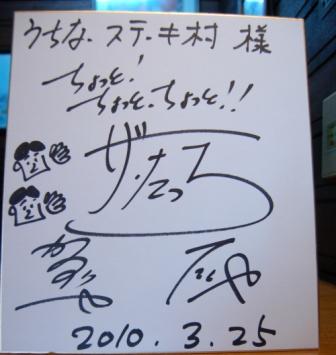 うちな、ステーキ村 様
ちょっと!
ちょっと、ちょっと!!
ザ・たっち
かずや
たくや
2010.3.25